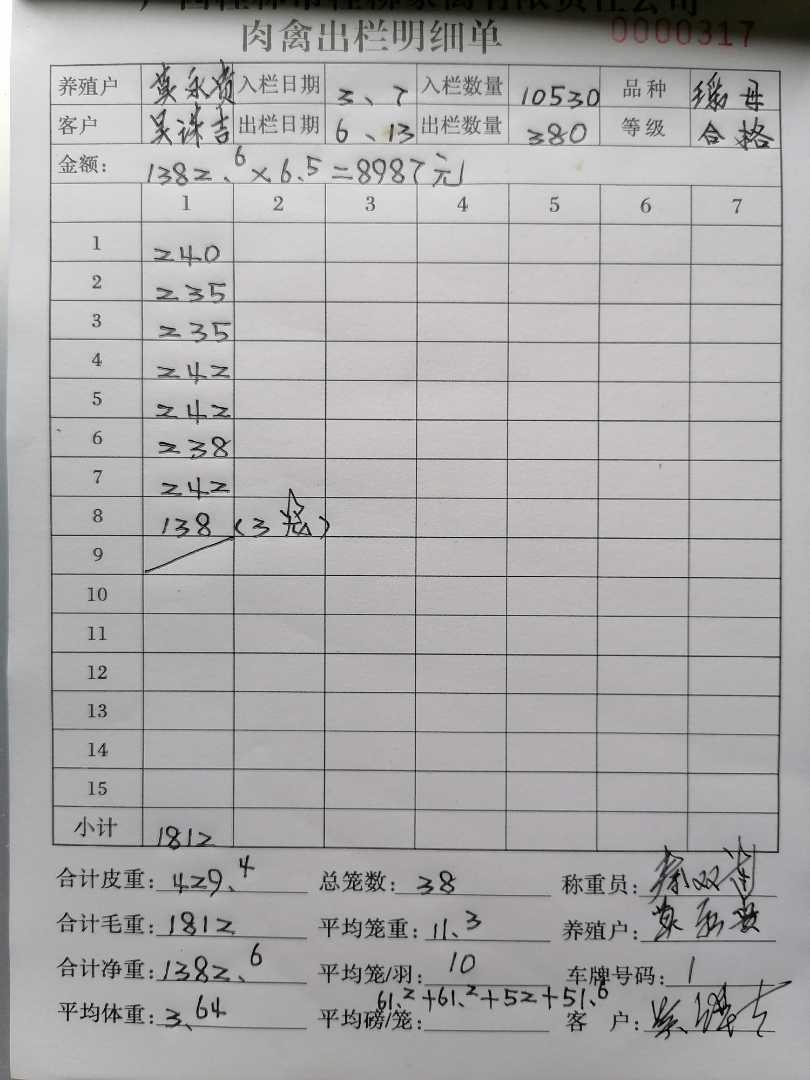 广西桂林市桂柳家禽有限责任公司
肉禽出栏明细单 0000317
养殖户 莫永贵 入栏日期 3、7 入栏数量 10530 品种 瑶母
客户 吴诛吉 出栏日期 6、13 出栏数量 380 等级 合格
金额: 1382.6×6.5=8987元
1 2 3 4 5 6 7
1 240
2 235
3 235
4 242
5 242
6 238
7 242
8 138 (3笼)
9
10
11
12
13
14
15
小计 1812
合计皮重: 429.4 总笼数: 38 称重员:
合计毛重: 1812 平均笼重: 11.3 养殖户:
合计净重: 1382.6 平均笼/羽: 10 车牌号码: 1
平均体重: 3.64 平均磅/笼: 61.2+61.2+52+51.6 客 户: